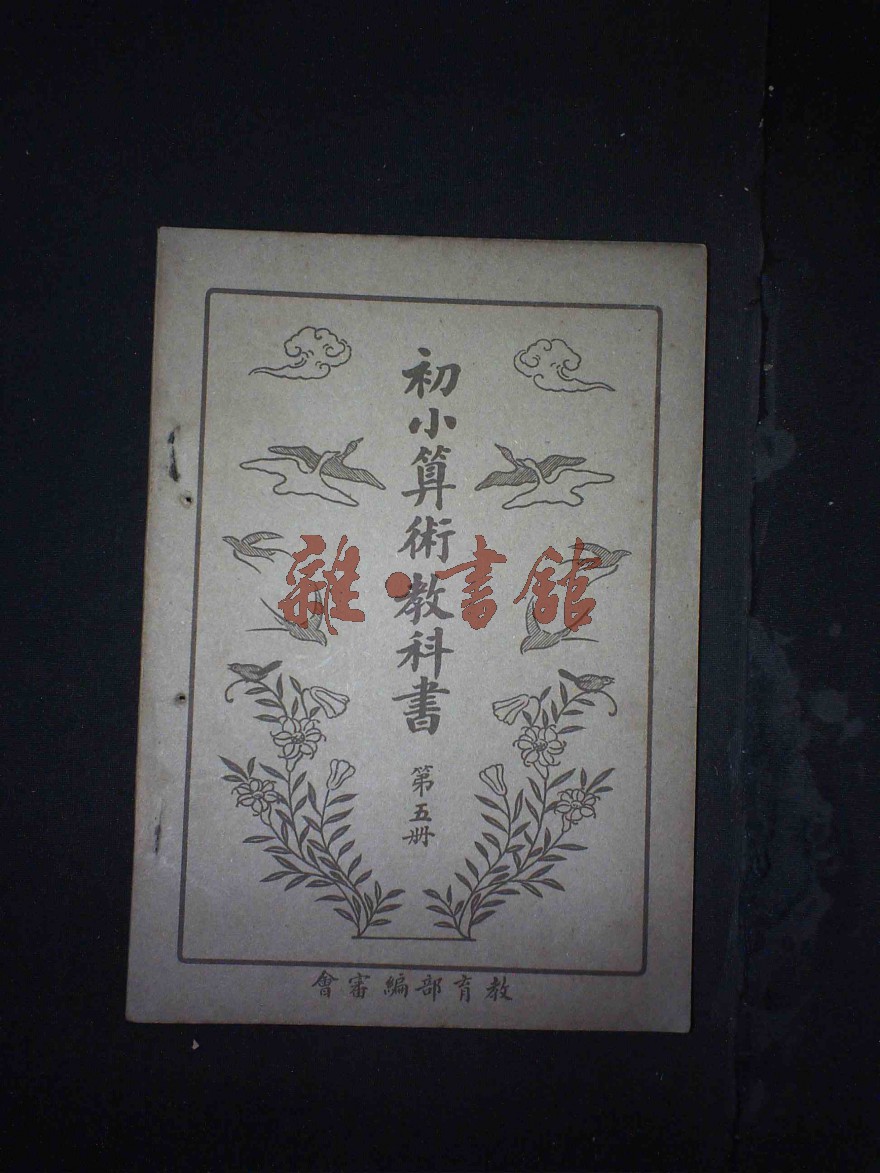 初小算術教科書
第五册
會審編部育教
雜·書館